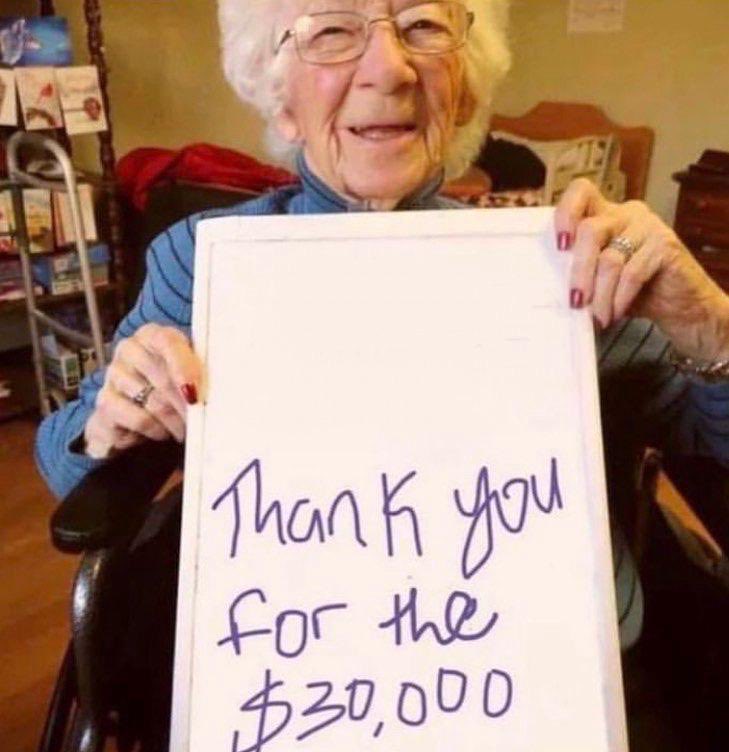 Thank you
for the
$30,000